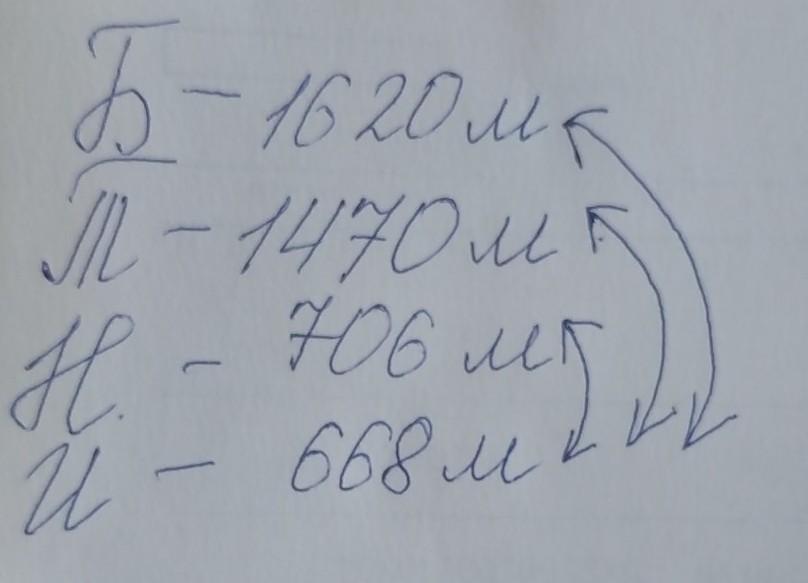 Б – 1620 м
Т – 1470 м
Н. – 706 м
И – 668 м